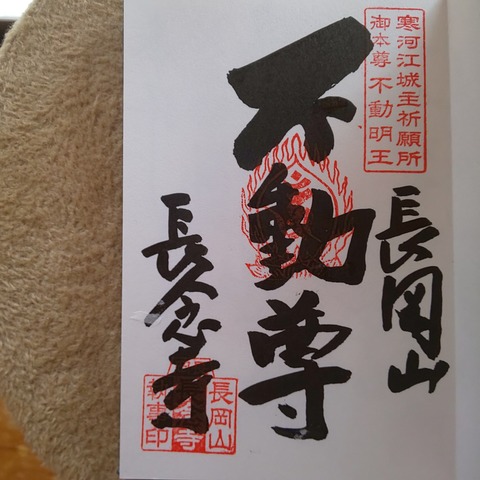 寒河江城主祈願所
御本尊不動明王
長岡山
不動尊
長念寺
長岡山
長念寺
執事印